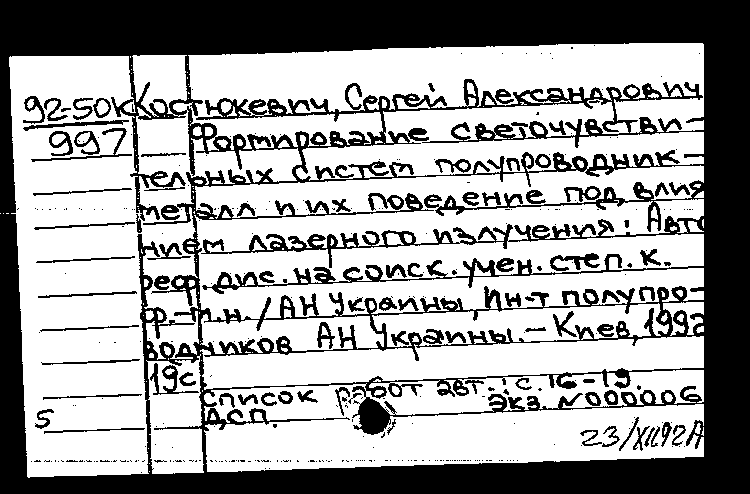 92-50К Костюкевич, Сергей Александрович
997 Формирование светочувстви-
тельных систем полупроводник-
металл и их поведение под влия
нием лазерного излучения: Авто
реф. дис. на соиск. учен. степ. к.
ф.-м.н. / АН Украины, Ин-т полупро-
водников АН Украины. – Киев, 1992
19с
Список работ авт.: с. 16-19.
ДСП. Экз. N000006
5
23/XII92А